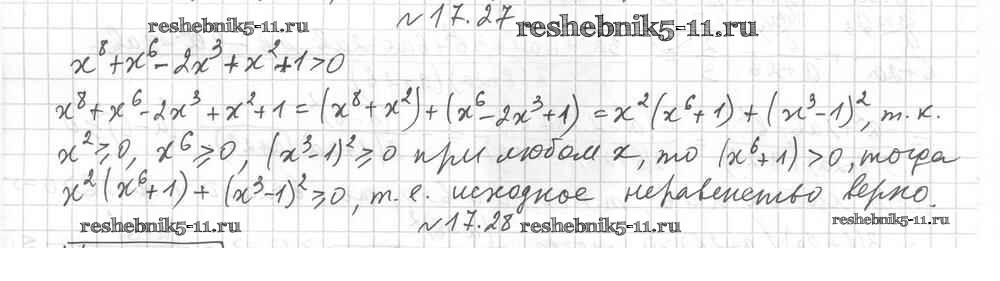 reshebnik5-11.ru №17.27 reshebnik5-11.ru
x⁸+x⁶-2x³+x²+1>0
x⁸+x⁶-2x³+x²+1=(x⁸+x²)+(x⁶-2x³+1)=x²(x⁶+1)+(x³-1)², т.к.
x²≥0, x⁶≥0, (x³-1)²≥0 при любом x, то (x⁶+1)>0, тогда
x²(x⁶+1)+(x³-1)²≥0, т.е. исходное неравенство верно.
reshebnik5-11.ru №17.28 reshebnik5-11.ru reshebnik5-11.ru